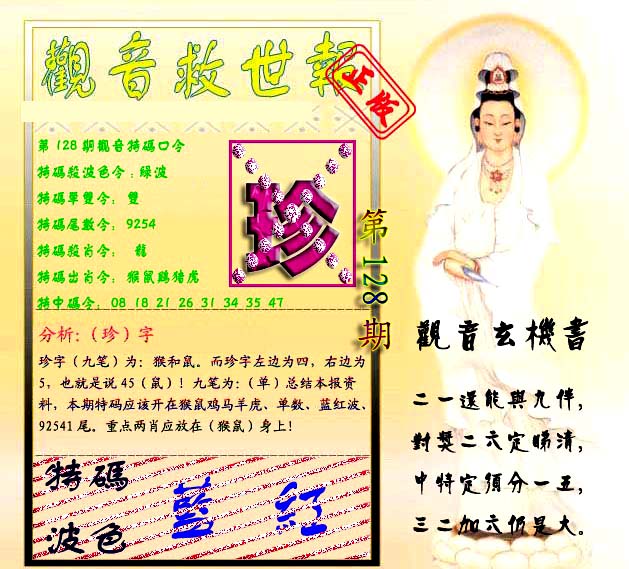 觀音救世報
正版
第128期觀音特碼口令
特碼殺波色令:綠波
特碼單雙令: 雙
特碼尾數令: 9254
特碼殺肖令: 龍
特碼出肖令: 猴鼠鷄猪虎
特中碼令: 08 18 21 26 31 34 35 47
珍
第128期
分析:（珍）字
珍字（九笔）为：猴和鼠。而珍字左边为四，右边为
5，也就是说45（鼠）！九笔为:（单）总结本报资
料，本期特码应该开在猴鼠鸡马羊虎、单数、蓝红波、
92541尾。重点两肖应放在（猴鼠）身上！
特碼
波色
藍 红
觀音玄機書
二一還能與九伴，
對獎二六定睇清，
中特定須分一五，
三二加六仍是大。